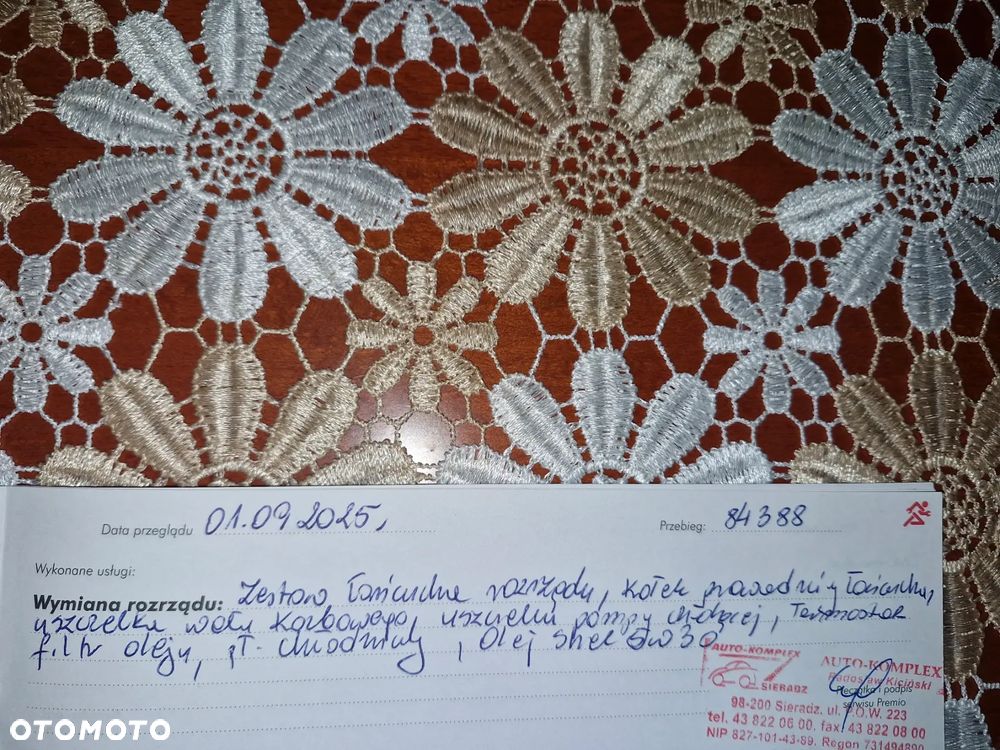 Data przeglądu 01.09 2025, Przebieg: 84388
Wykonane usługi:
Wymiana rozrządu: Zestaw łańcucha rozrządu, kołek prowadnicy łańcucha,
uszczelka wału korbowego, uszczelki pompy chłodzącej, Termostat
filtr oleju, pł. chłodniczy, olej Shel 5w30
AUTO-KOMPLEX
SIERADZ
AUTO-KOMPLEX
Radosław Kiciński
Pieczątka i podpis
serwisu Premio
98-200 Sieradz, ul. P.O.W. 223
tel. 43 822 06 00, fax 43 822 08 00
NIP 827-101-43-89, Regon 731494890
OTOMOTO